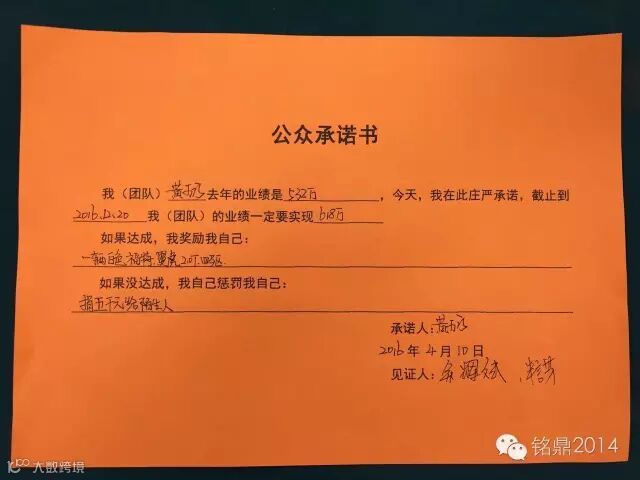 公众承诺书
我（团队）黄万丞去年的业绩是532万，今天，我在此庄严承诺，截止到
2016.12.20 我（团队）的业绩一定要实现618万
如果达成，我奖励我自己：
一辆 福特翼虎2.0T.四驱
如果没达成，我自己惩罚我自己：
捐五千元给陌生人
承诺人：黄万丞
2016年4月10日
见证人：
铭鼎2014
大数跨境